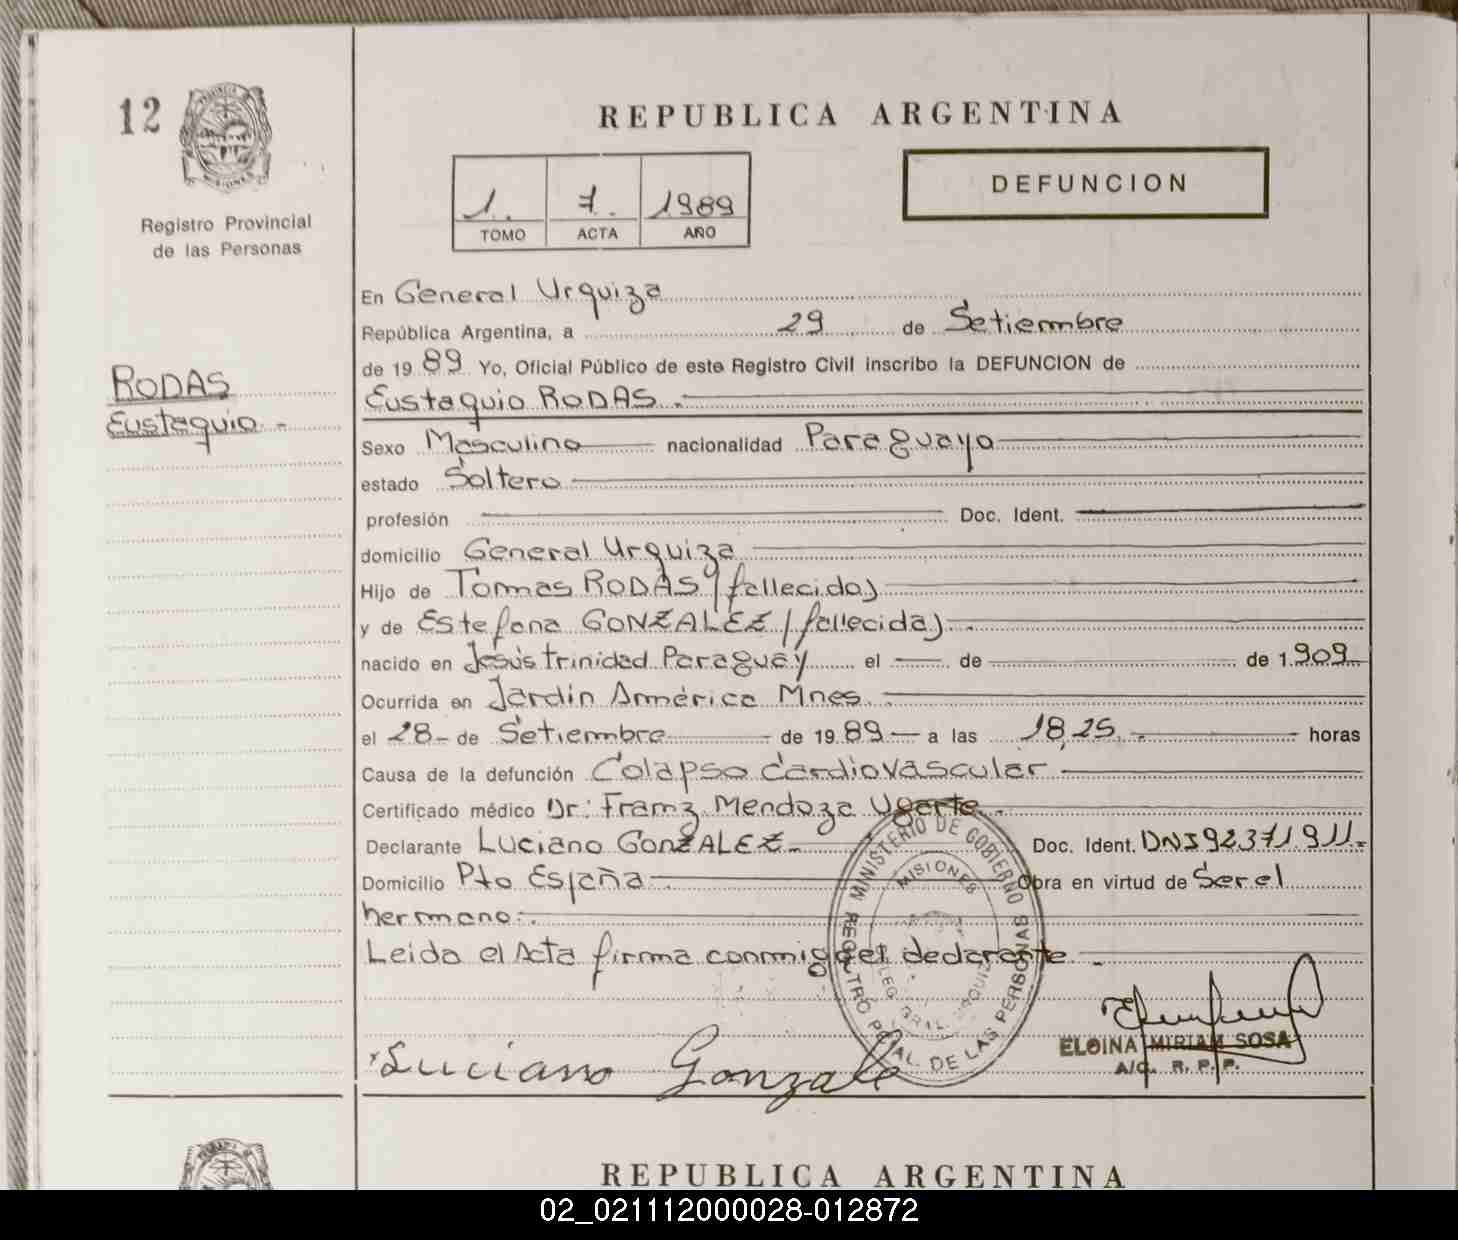 12
Registro Provincial
de las Personas
RODAS
Eustaquio.-
REPUBLICA ARGENTINA
1. 7. 1989
TOMO ACTA AÑO
DEFUNCION
En General Urquiza
República Argentina, a 29 de Setiembre
de 19 89 Yo, Oficial Público de este Registro Civil inscribo la DEFUNCION de
Eustaquio RODAS.-
Sexo Masculino nacionalidad Paraguayo
estado Soltero
profesión Doc. Ident.
domicilio General Urquiza
Hijo de Tomas RODAS (fallecido)
y de Estefana GONZALEZ (fallecida).-
nacido en Jesús trinidad Paraguay el de de 1.909
Ocurrida en Jardin América Mnes.
el 28 de Setiembre de 19 89 a las 18,25.- horas
Causa de la defunción Colapso Cardiovascular
Certificado médico Dr: Framz Mendoza Ugarte.-
Declarante Luciano GONZALEZ.- Doc. Ident. DNI 92.371.911.-
Domicilio Pto España Obra en virtud de Ser el
hermano.-
Leida el Acta firma conmigo el declarante.-
MINISTERIO DE GOBIERNO
MISIONES
REGISTRO PCIAL. DE LAS PERSONAS
DELEG. GRAL. URQUIZA
Luciano Gonzale
ELOINA MIRIAM SOSA
A/C. R. P. P.
REPUBLICA ARGENTINA
02_021112000028-012872